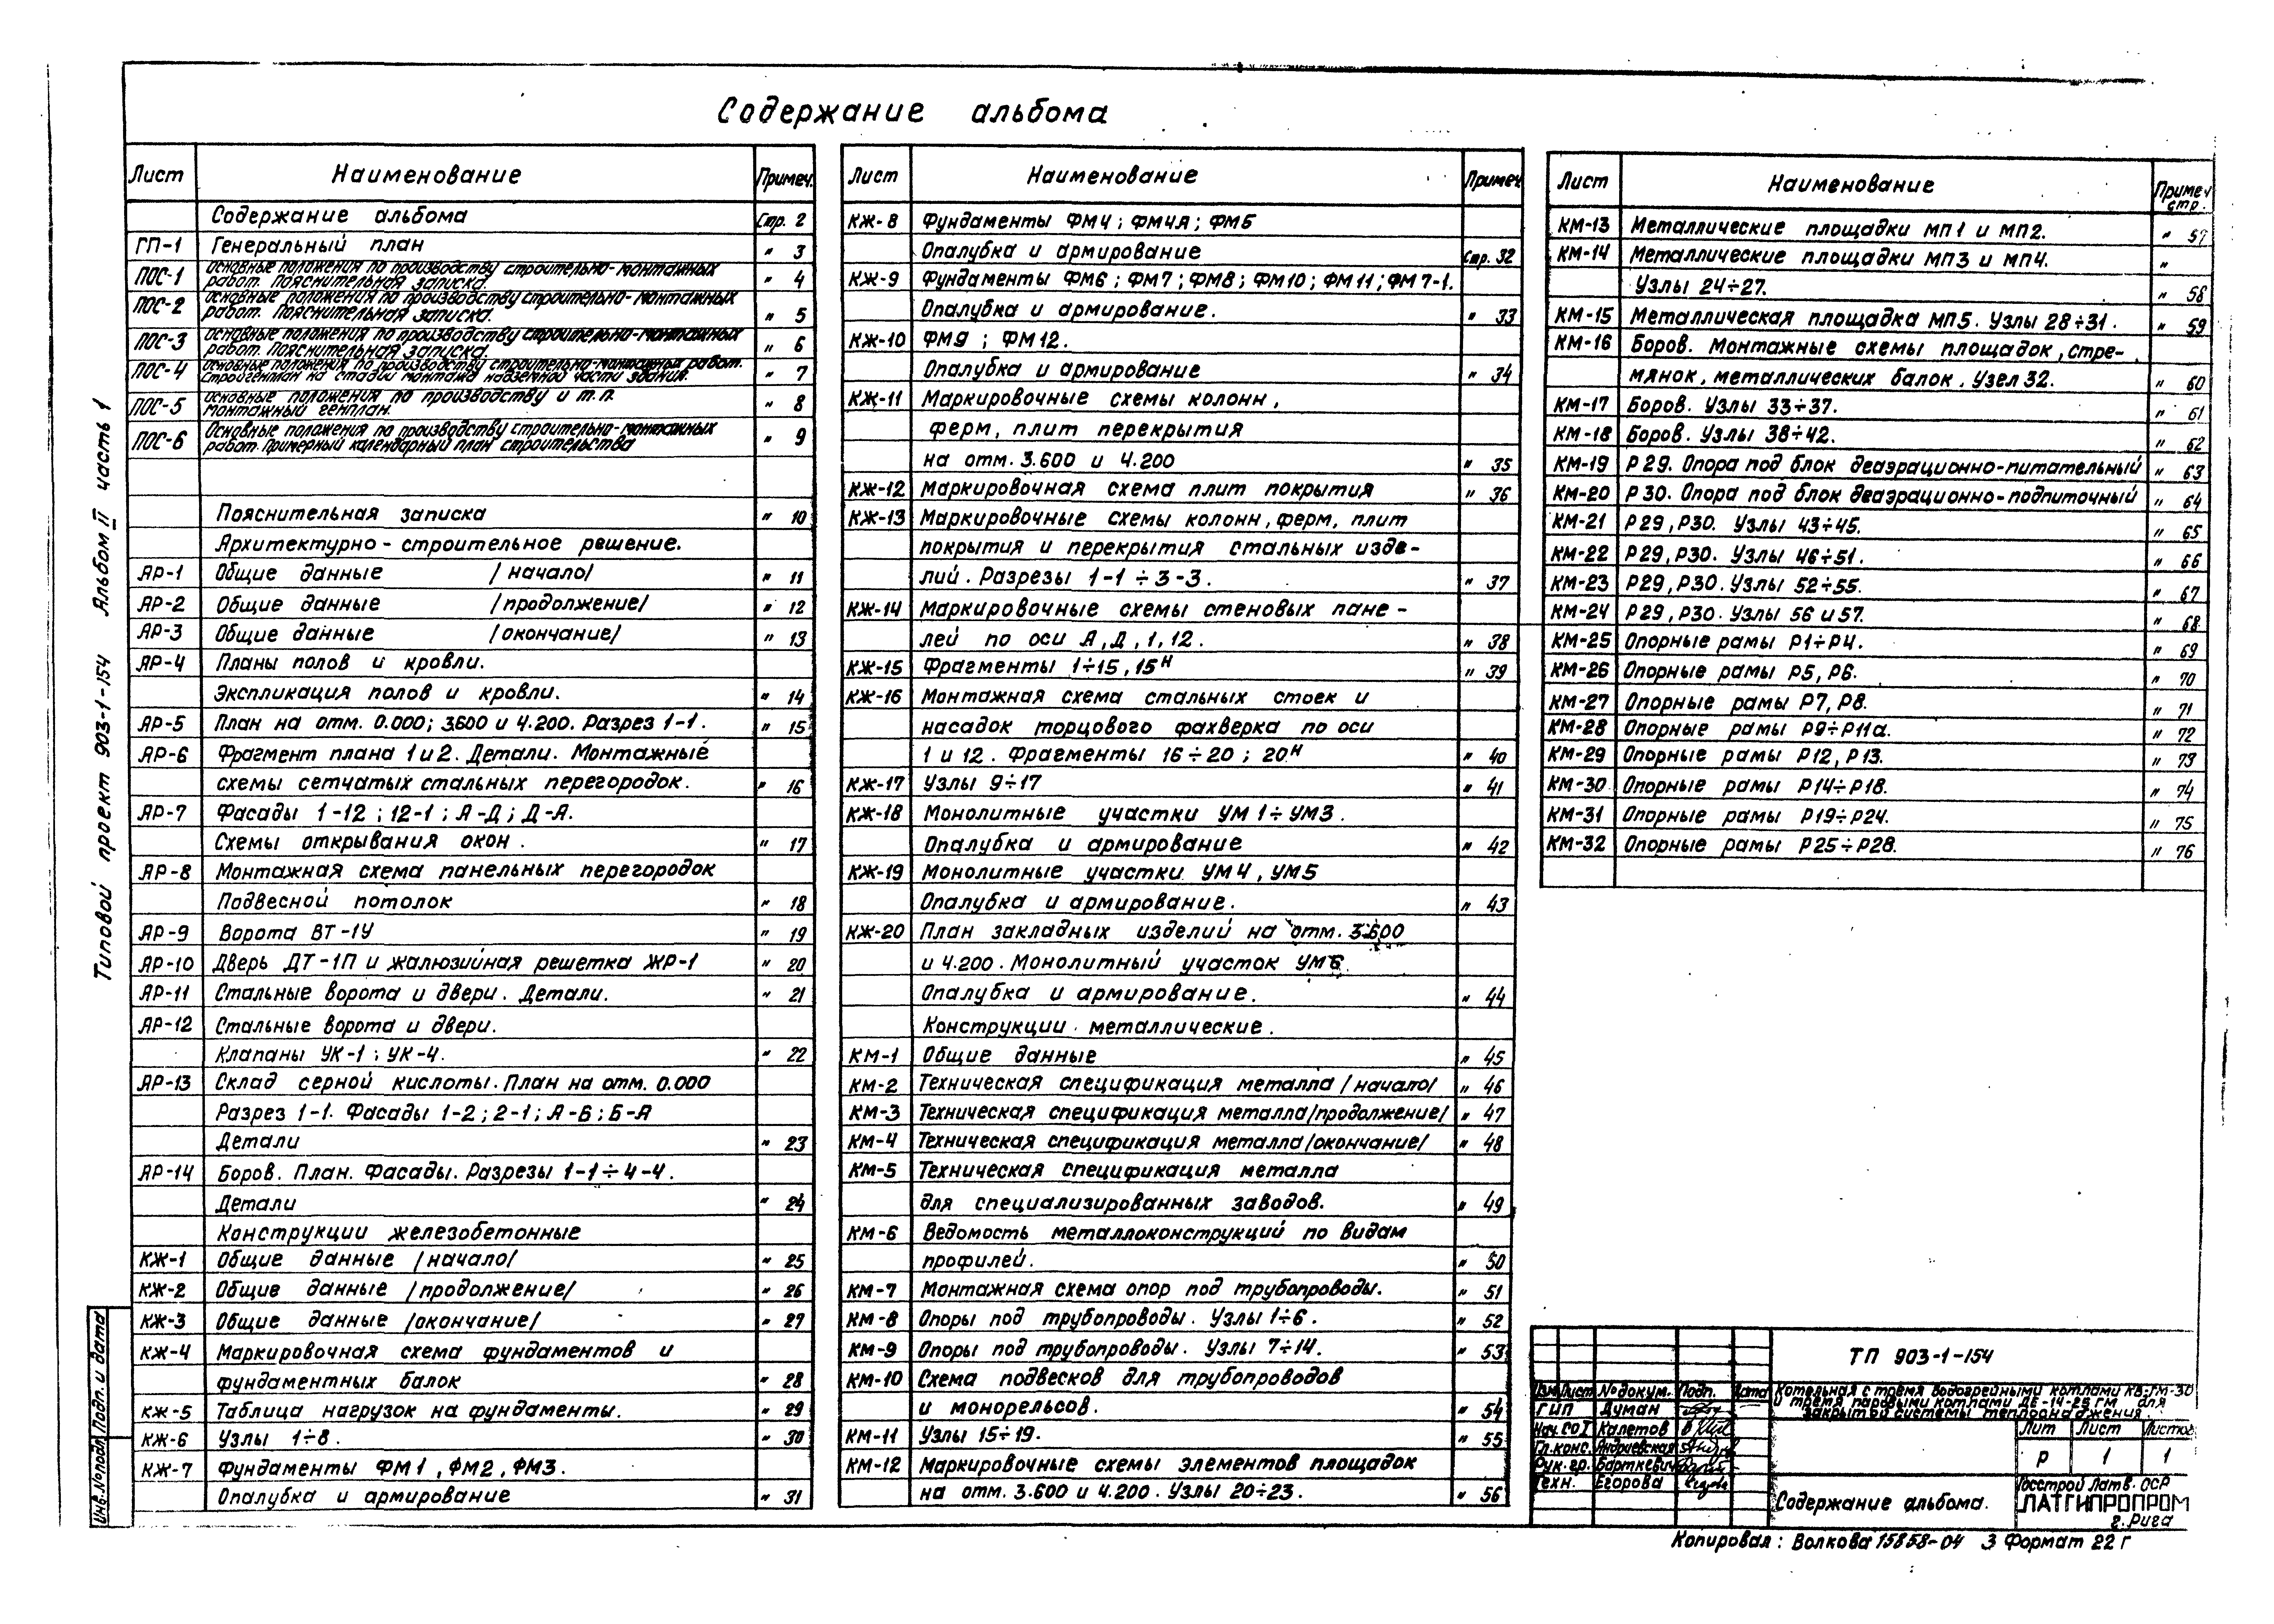 Содержание альбома
Лист Наименование Примеч.
Содержание альбома Стр. 2
ГП-1 Генеральный план " 3
ПОС-1 Основные положения по производству строительно-монтажных
работ. Пояснительная записка " 4
ПОС-2 Основные положения по производству строительно-монтажных
работ. Пояснительная записка. " 5
ПОС-3 Основные положения по производству строительно-монтажных
работ. Пояснительная записка. " 6
ПОС-4 Основные положения по производству строительно-монтажных работ.
Стройгенплан на стадии монтажа надземной части здания. " 7
ПОС-5 Основные положения по производству и т.п.
Монтажный генплан. " 8
ПОС-6 Основные положения по производству строительно-монтажных
работ. Примерный календарный план строительства " 9
Пояснительная записка " 10
Архитектурно-строительное решение.
АР-1 Общие данные /начало/ " 11
АР-2 Общие данные /продолжение/ " 12
АР-3 Общие данные /окончание/ " 13
АР-4 Планы полов и кровли.
Экспликация полов и кровли. " 14
АР-5 План на отм. 0.000; 3.600 и 4.200. Разрез 1-1. " 15
АР-6 Фрагмент плана 1 и 2. Детали. Монтажные
схемы сетчатых стальных перегородок. " 16
АР-7 Фасады 1-12; 12-1; А-Д; Д-А.
Схемы открывания окон. " 17
АР-8 Монтажная схема панельных перегородок
Подвесной потолок " 18
АР-9 Ворота ВТ-1У " 19
АР-10 Дверь ДТ-1П и жалюзийная решетка ЖР-1 " 20
АР-11 Стальные ворота и двери. Детали. " 21
АР-12 Стальные ворота и двери.
Клапаны УК-1; УК-4. " 22
АР-13 Склад серной кислоты. План на отм. 0.000
Разрез 1-1. Фасады 1-2; 2-1; А-Б; Б-А
Детали " 23
АР-14 Боров. План. Фасады. Разрезы 1-1÷4-4.
Детали " 24
Конструкции железобетонные
КЖ-1 Общие данные /начало/ " 25
КЖ-2 Общие данные /продолжение/ " 26
КЖ-3 Общие данные /окончание/ " 27
КЖ-4 Маркировочная схема фундаментов и
фундаментных балок " 28
КЖ-5 Таблица нагрузок на фундаменты. " 29
КЖ-6 Узлы 1÷8. " 30
КЖ-7 Фундаменты ФМ1, ФМ2, ФМ3.
Опалубка и армирование " 31
Лист Наименование Примеч
КЖ-8 Фундаменты ФМ4; ФМ4А; ФМ5
Опалубка и армирование Стр. 32
КЖ-9 Фундаменты ФМ6; ФМ7; ФМ8; ФМ10; ФМ11; ФМ7-1.
Опалубка и армирование. " 33
КЖ-10 ФМ9; ФМ12.
Опалубка и армирование " 34
КЖ-11 Маркировочные схемы колонн,
ферм, плит перекрытия
на отм. 3.600 и 4.200 " 35
КЖ-12 Маркировочная схема плит покрытия " 36
КЖ-13 Маркировочные схемы колонн, ферм, плит
покрытия и перекрытия стальных изде-
лий. Разрезы 1-1÷3-3. " 37
КЖ-14 Маркировочные схемы стеновых пане-
лей по оси А, Д, 1, 12. " 38
КЖ-15 Фрагменты 1÷15, 15н " 39
КЖ-16 Монтажная схема стальных стоек и
насадок торцового фахверка по оси
1 и 12. Фрагменты 16÷20; 20н " 40
КЖ-17 Узлы 9÷17 " 41
КЖ-18 Монолитные участки УМ1÷УМ3.
Опалубка и армирование " 42
КЖ-19 Монолитные участки УМ4, УМ5
Опалубка и армирование. " 43
КЖ-20 План закладных изделий на отм. 3.600
и 4.200. Монолитный участок УМ6.
Опалубка и армирование. " 44
Конструкции металлические.
КМ-1 Общие данные " 45
КМ-2 Техническая спецификация металла /начало/ " 46
КМ-3 Техническая спецификация металла /продолжение/ " 47
КМ-4 Техническая спецификация металла /окончание/ " 48
КМ-5 Техническая спецификация металла
для специализированных заводов. " 49
КМ-6 Ведомость металлоконструкций по видам
профилей. " 50
КМ-7 Монтажная схема опор под трубопроводы. " 51
КМ-8 Опоры под трубопроводы. Узлы 1÷6. " 52
КМ-9 Опоры под трубопроводы. Узлы 7÷14. " 53
КМ-10 Схема подвесков для трубопроводов
и монорельсов. " 54
КМ-11 Узлы 15÷19. " 55
КМ-12 Маркировочные схемы элементов площадок
на отм. 3.600 и 4.200. Узлы 20÷23. " 56
Лист Наименование Примеч стр.
КМ-13 Металлические площадки МП1 и МП2. " 57
КМ-14 Металлические площадки МП3 и МП4. "
Узлы 24÷27. " 58
КМ-15 Металлическая площадка МП5. Узлы 28÷31. " 59
КМ-16 Боров. Монтажные схемы площадок, стре-
мянок, металлических балок. Узел 32. " 60
КМ-17 Боров. Узлы 33÷37. " 61
КМ-18 Боров. Узлы 38÷42. " 62
КМ-19 Р29. Опора под блок деаэрационно-питательный " 63
КМ-20 Р30. Опора под блок деаэрационно-подпиточный " 64
КМ-21 Р29, Р30. Узлы 43÷45. " 65
КМ-22 Р29, Р30. Узлы 46÷51. " 66
КМ-23 Р29, Р30. Узлы 52÷55. " 67
КМ-24 Р29, Р30. Узлы 56 и 57. " 68
КМ-25 Опорные рамы Р1÷Р4. " 69
КМ-26 Опорные рамы Р5, Р6. " 70
КМ-27 Опорные рамы Р7, Р8. " 71
КМ-28 Опорные рамы Р9÷Р11а. " 72
КМ-29 Опорные рамы Р12, Р13. " 73
КМ-30 Опорные рамы Р14÷Р18. " 74
КМ-31 Опорные рамы Р19÷Р24. " 75
КМ-32 Опорные рамы Р25÷Р28. " 76
Типовой проект 903-1-154 Альбом II часть 1
Инв.№подл. Подп. и дата
ТП 903-1-154
Изм Лист № докум. Подп. Дата
Котельная с тремя водогрейными котлами КВ-ГМ-30
и тремя паровыми котлами ДЕ-14-25 ГМ для
закрытой системы теплоснабжения
ГИП Думан
Нач. СО I Калетов
Гл. конс. Андриевская
Рук. гр. Барткевич
Техн. Егорова
Лит Лист Листов
Р 1 1
Содержание альбома.
Госстрой Латв. ССР
ЛАТГИПРОПРОМ
г. Рига
Копировал: Волкова 15858-04 3 Формат 22 г